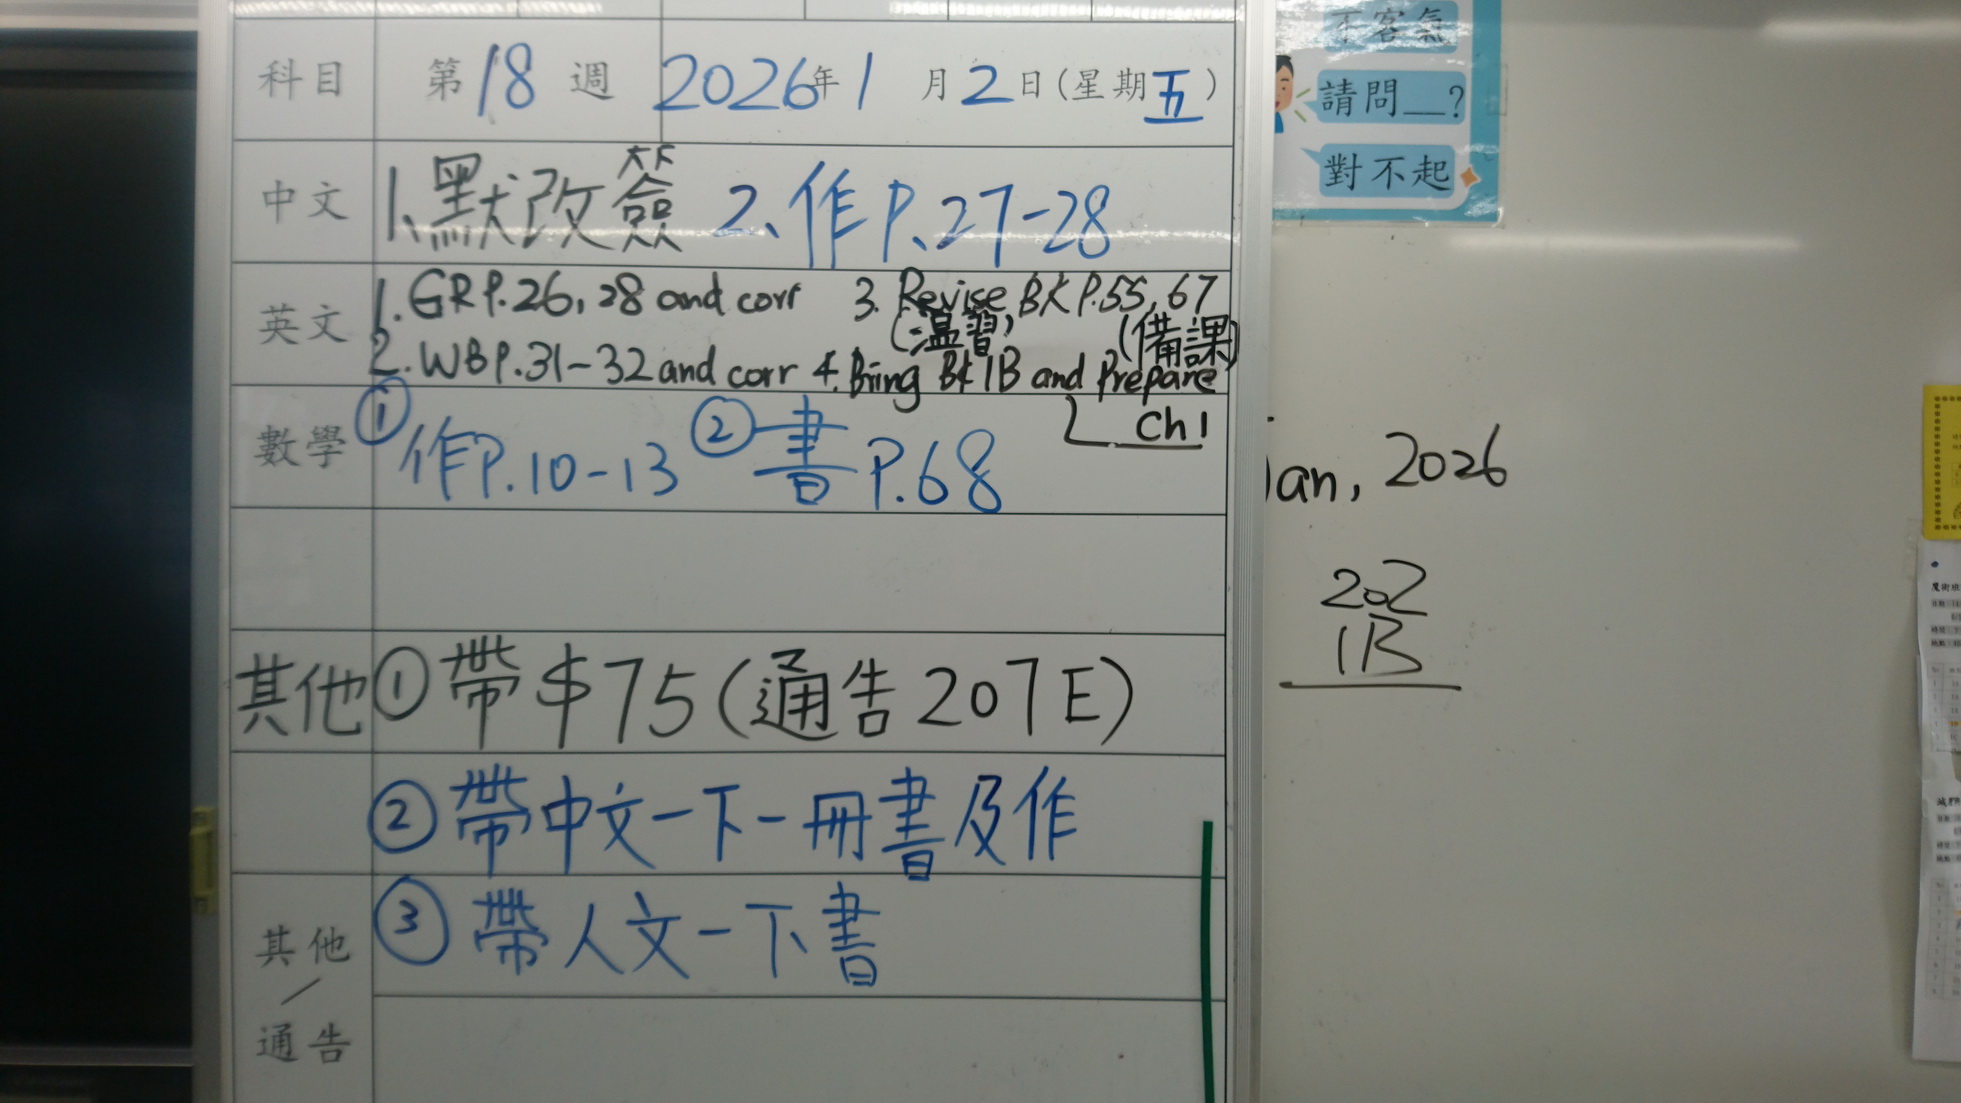 科目 第18週 2026年1月2日(星期五)
中文 1、默改簽 2、作P.27-28
英文 1. GR P.26, 28 and corr 3. Revise BK P.55, 67
(溫習) (備課)
2. WB P.31-32 and corr 4. Bring BK 1B and Prepare
Ch 1
數學 ① 作P.10-13 ② 書P.68
其他 ①帶$75(通告207E)
②帶中文一下一冊書及作
其他/通告 ③帶人文一下書
不客氣
請問__?
對不起
Jan, 2026
202
1B